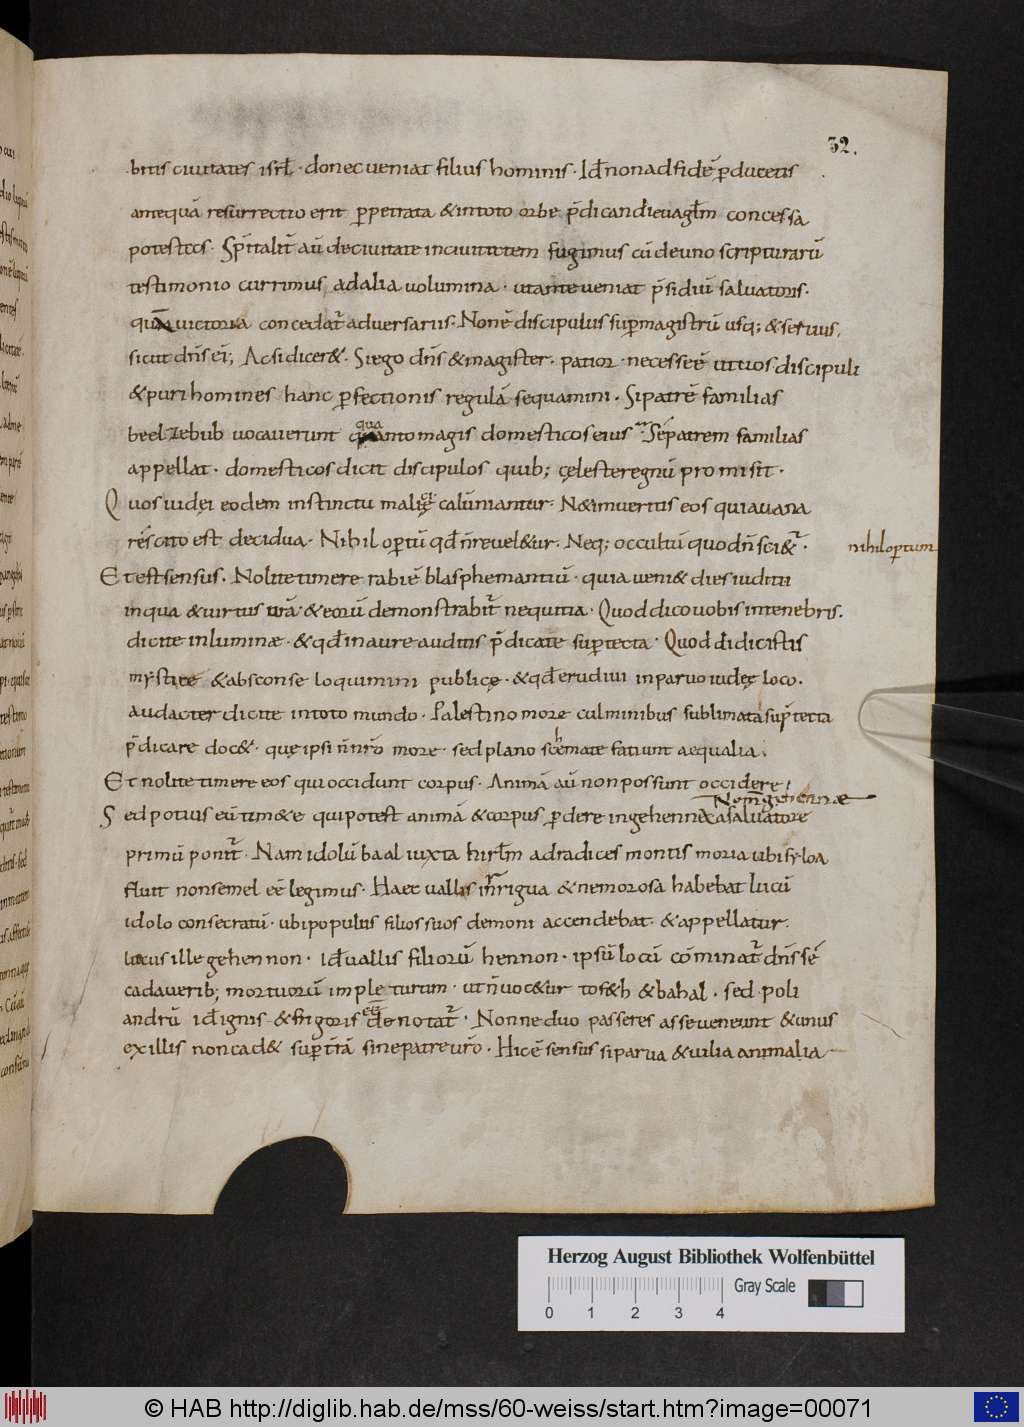 32.
bitis ciuitates isrł · donec ueniat filius hominis · Id̄ non ad fidē p̄ducetis
antequā resurrectio erit p̄petrata & in toto orbe p̄dicandi euagłm concessa
potestas · Sp̄italit̄ aū de ciuitate in ciuitatem fugimus cū de uno scripturarū
testimonio currimus ad alia uolumina · ut ante ueniat p̄sidiū saluatoris ·
quā uictoria concedat̄ aduersariis · Non ē discipulus sup̄ magistrū usq; & seruus
sicut dn̄s ei'; Ac si dicer& · Si ego dn̄s & magister · patior · necesse ē ut uos discipuli
& puri homines hanc p̄fectionis regulā sequamini · Si patrē familias
beelzebub uocauerunt quanto magis domesticos eius · Sē patrem familias
appellat · domesticos dicit discipulos quib; cęleste regnū promisit ·
Quos iudęi eodem instinctu malię calūniantur · N& inuertus eos quia uana
res cito est decidua · Nihil op̄tū qd̄ n̄ reuel&ur · Neq; occultū quod n̄ sci&' ·
nihil op̄tum
Et est sensus · Nolite timere rabiē blasphemantiū · quia ueni& dies iudicii
in qua & uirtus ur̄a · & eorū demonstrabit̄ nequitia · Quod dico uobis in tenebris ·
dicite in luminæ · & qd̄ in aure auditis p̄dicate sup̄ tecta · Quod didicistis
mystice & absconse loquimini publicę · & qd̄ erudiui in paruo iudęę loco ·
audacter dicite in toto mundo · Palestino more culminibus sublimata sup̄ tecta
p̄dicare doc& · quę ipsi n̄ nr̄o more · sed plano schemate fatiunt aequalia ·
Et nolite timere eos qui occidunt corpus · Animā aū non possunt occidere ·
Nom̄ gehennæ
Sed potius eū tim&e qui potest animā & corpus p̄dere in gehenn& a saluatore
primū ponit̄ · Nam idolū baal iuxta hirłm ad radices montis moria ubi syloa
fluit non semel eē legimus · Haec uallis inrigua & nemorosa habebat lucū
idolo consecratū · ubi populus filios suos demoni accendebat · & appellatur
lucus ille gehennon · id̄ uallis filiorū hennon · ipsū locū cōminat̄ dn̄s sē
cadauerib; mortuorū impleturum · ut n̄ uoc&ur tof&h & bahal · sed poli
andrū id̄ ignis & frigoris denotat̄ · Nonne duo passeres asse ueneunt & unus
ex illis non cad& sup̄ tr̄ā sine patre ur̄o · Hic ē sensus si parua & uilia animalia
Herzog August Bibliothek Wolfenbüttel
Gray Scale
0 1 2 3 4
© HAB http://diglib.hab.de/mss/60-weiss/start.htm?image=00071